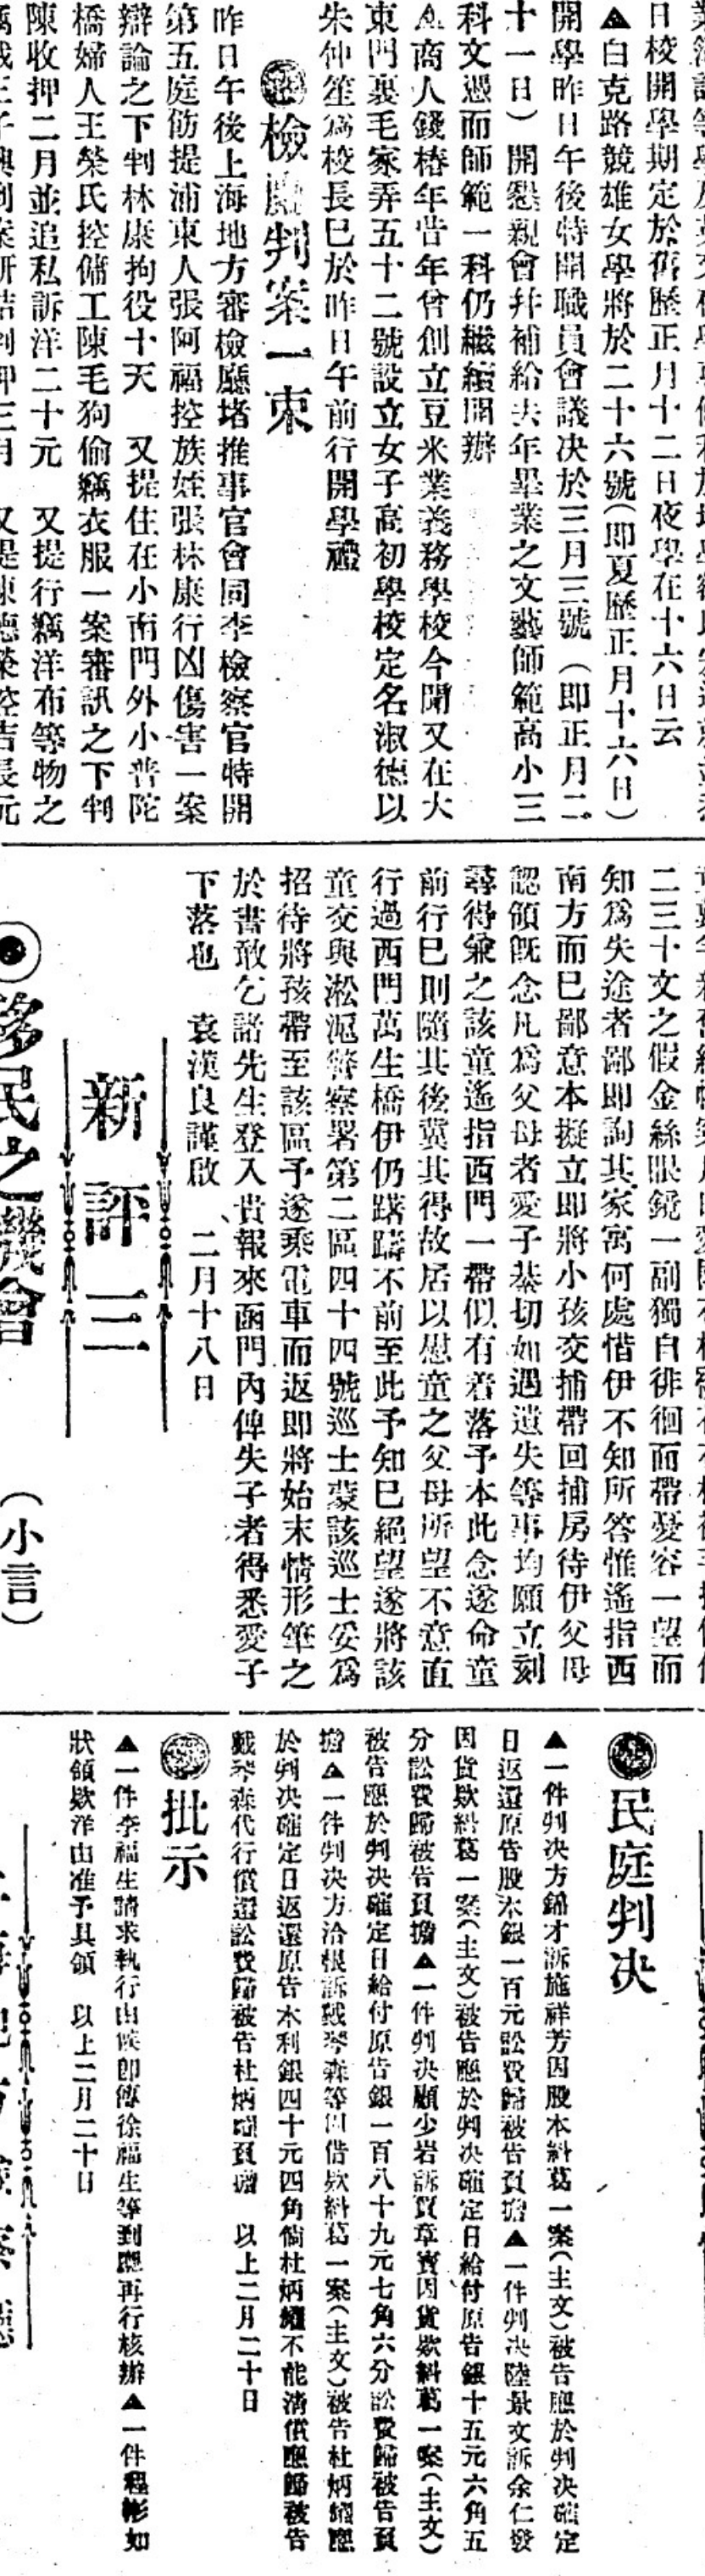 日校開學期定於舊曆正月十二日夜學在十六日云
▲白克路競雄女學將於二十六號(即夏歷正月十六日)
開學昨日午後特開職員會議决於三月三號(即正月二
十一日)開懇親會幷補給去年畢業之文藝師範高小三
科文憑而師範一科仍繼續開辦
▲商人錢椿年昔年曾創立豆米業義務學校今聞又在大
東門裏毛家弄五十二號設立女子高初學校定名淑德以
朱仲笙爲校長已於昨日午前行開學禮
檢廳判案一束
昨日午後上海地方審檢廳堵推事官會同李檢察官特開
第五庭飭提浦東人張阿福控族姪張林康行凶傷害一案
辯論之下判林康拘役十天 又提住在小南門外小普陀
橋婦人王榮氏控傭工陳毛狗偷竊衣服一案審訊之下判
陳收押二月並追私訴洋二十元 又提行竊洋布等物之
二三十文之假金絲眼鏡一副獨自徘徊而帶憂容一望而
知爲失途者鄙即詢其家寓何處惜伊不知所答惟遙指西
南方而已鄙意本擬立即將小孩交捕帶回捕房待伊父母
認領旣念凡爲父母者愛子綦切如遇遺失等事均願立刻
尋得兼之該童遙指西門一帶似有着落予本此念遂命童
前行已則隨其後冀其得故居以慰童之父母所望不意直
行過西門萬生橋伊仍躇躊不前至此予知已絕望遂將該
童交與淞滬警察署第二區四十四號巡士蒙該巡士妥爲
招待將孩帶至該區予遂乘電車而返即將始末情形筆之
於書敢乞諸先生登入貴報來函門內俾失子者得悉愛子
下落也 袁漢良謹啟 二月十八日
新評三
◉移民之機會 (小言)
民庭判决
▲一件判决方錦才訴施祥芳因股本糾葛一案(主文)被告應於判决確定
日返還原告股本銀一百元訟費歸被告負擔▲一件判决陸景文訴余仁發
因貨欵糾葛一案(主文)被告應於判决確定日給付原告銀十五元六角五
分訟費歸被告負擔▲一件判决顧少岩訴賀章寶因貨欵糾葛一案(主文)
被告應於判决確定日給付原告銀一百八十九元七角六分訟費歸被告負
擔▲一件判决方洽根訴戴琴森等因借欵糾葛一案(主文)被告杜炳應
於判决確定日返還原告本利銀四十元四角倘杜炳不能淸償應歸被告
戴琴森代行償還訟費歸被告杜炳負擔 以上二月二十日
批示
▲一件李福生請求執行由候即傳徐福生等到廳再行核辦▲一件程彬如
狀領欵洋由准予具領 以上二月二十日